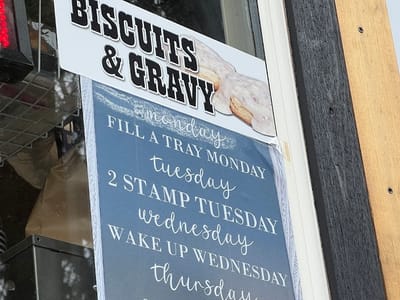 BISCUITS
& GRAVY
monday
FILL A TRAY MONDAY
tuesday
2 STAMP TUESDAY
wednesday
WAKE UP WEDNESDAY
thursday